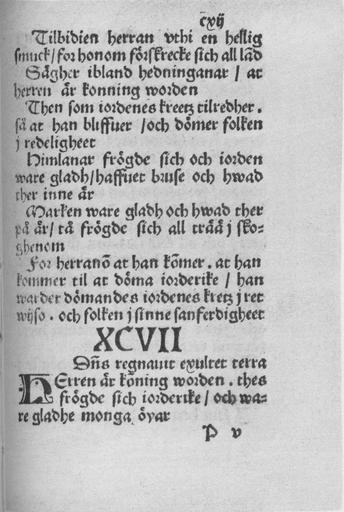 cxij
Tilbidien herran vthi en hellig
smuck/for honom förskrecke sich all lãd
Sägher ibland hedninganar / at
herren är konning worden
Then som iordenes kreetz tilredher.
så at han bliffuer /och dömer folken
j redeligheet
Himlanar frögde sich och iorden
ware gladh/haffuet bruse och hwad
ther inne är
Marken ware gladh och hwad ther
på är/ tå frögde sich all trää j sko-
ghenom
For herranõ at han kõmer. at han
kommer til at döma iorderike / han
warder dömandes iordenes kretz j ret
wijso. och folken j sinne sanferdigheet
XCVII
Dñs regnauit exultet terra
HErren är köning worden. thes
frögde sich iorderike / och wa-
re gladhe monga öyar
P v